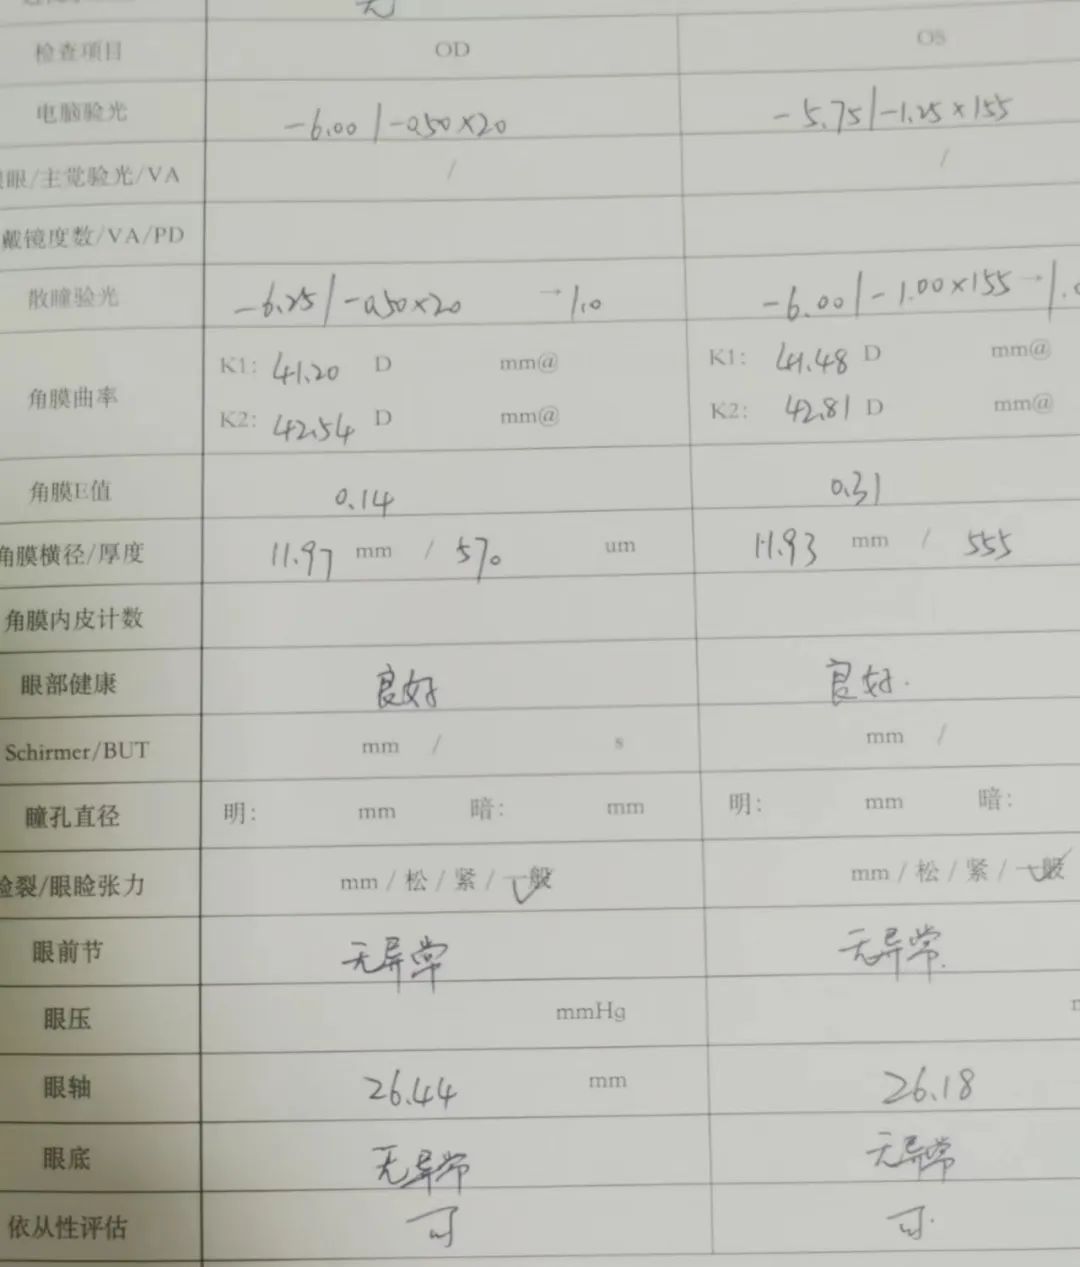 无
检查项目 OD OS
电脑验光 -6.00/-0.50×20 -5.75/-1.25×155
眼/主觉验光/VA / /
戴镜度数/VA/PD
散瞳验光 -6.25/-0.50×20 →1.0 -6.00/-1.00×155→1.0
角膜曲率
K1: 41.20 D mm@ K1: 41.48 D mm@
K2: 42.54 D mm@ K2: 42.81 D mm@
角膜E值 0.14 0.31
角膜横径/厚度 11.97 mm / 570 um 11.93 mm / 555
角膜内皮计数
眼部健康 良好 良好.
Schirmer/BUT mm / s mm /
瞳孔直径 明: mm 暗: mm 明: mm 暗:
睑裂/眼睑张力 mm/松/紧/一般 mm/松/紧/一般
眼前节 无异常 无异常.
眼压 mmHg
眼轴 26.44 mm 26.18
眼底 无异常 无异常
依从性评估 可 可.